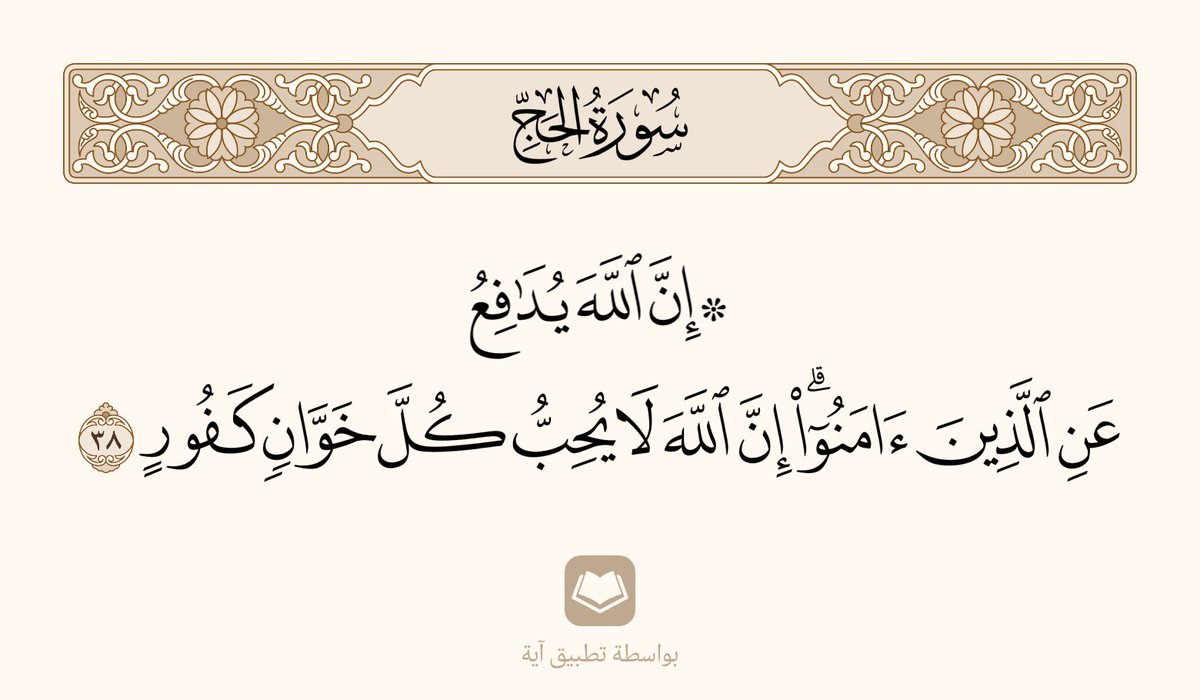 سُورَةُ الحَجِّ
۞ إِنَّ ٱللَّهَ يُدَٰفِعُ
عَنِ ٱلَّذِينَ ءَامَنُوٓا۟ ۗ إِنَّ ٱللَّهَ لَا يُحِبُّ كُلَّ خَوَّانٍ كَفُورٍ ٣٨
بواسطة تطبيق آية